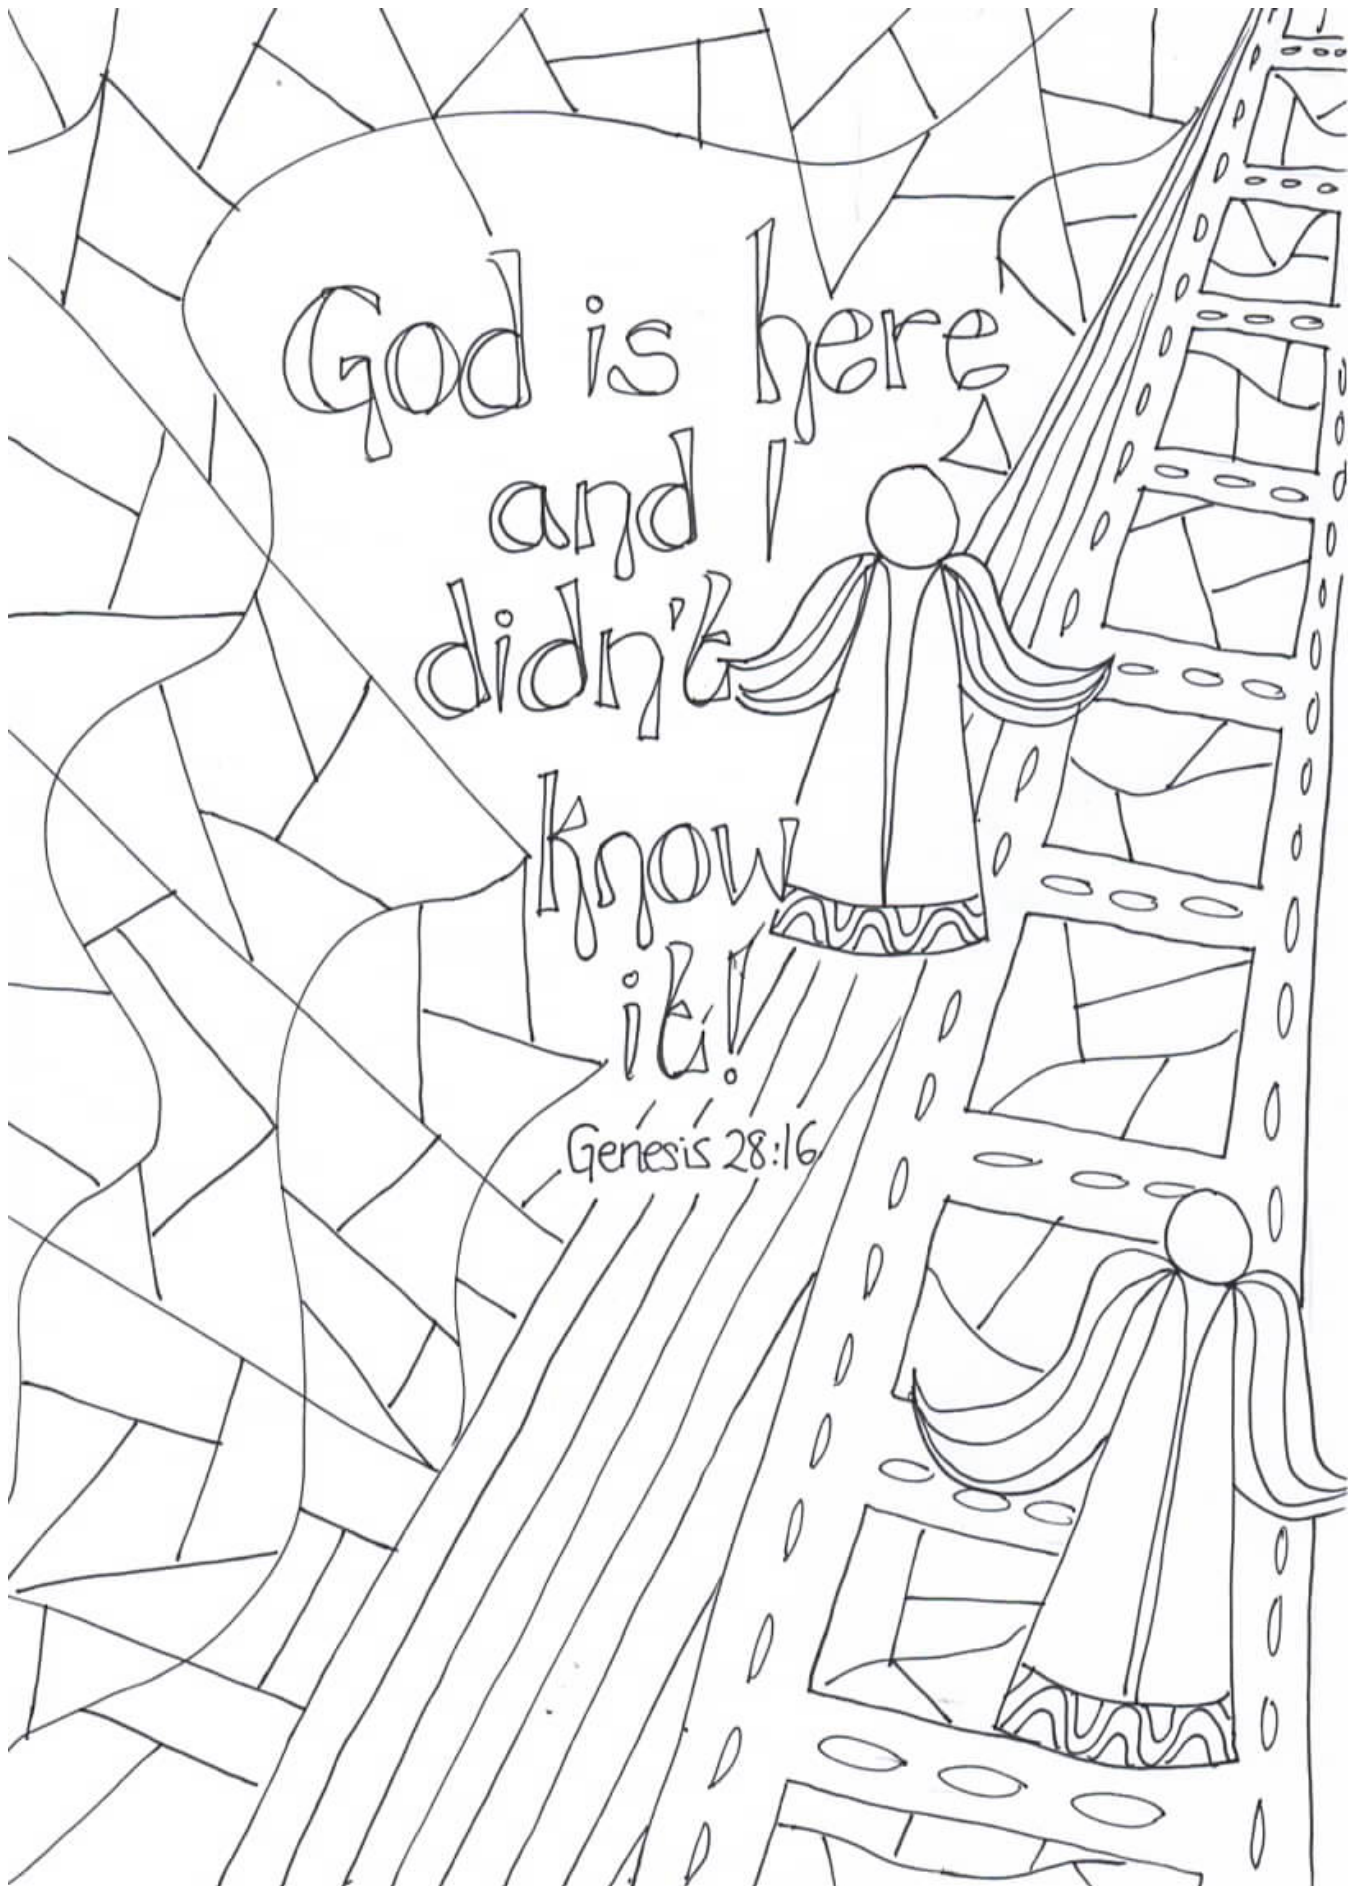 God is here
and I
didn't
know
it!
Genesis 28:16